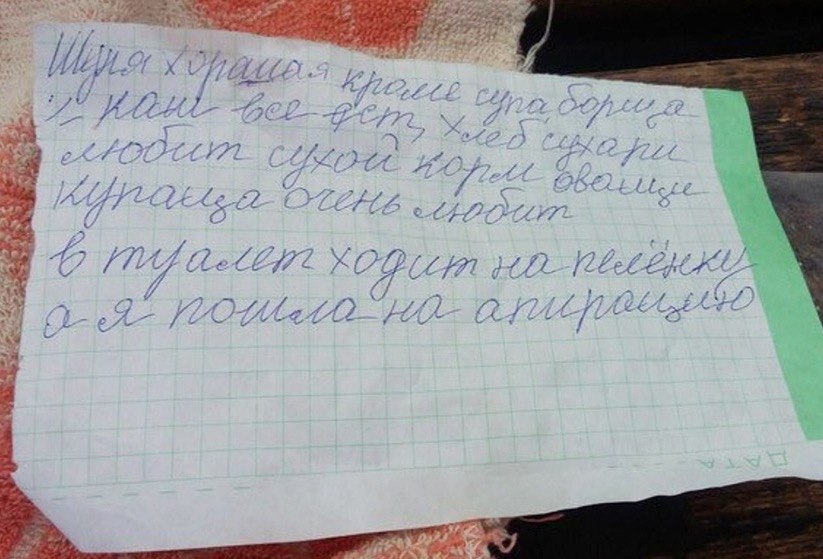 Шуня хорашая кроме супа борща
и каш все ест, хлеб сухари
любит сухой корм овощи
купаца очень любит
в туалет ходит на пелёнку
а я пошла на апирацию
ДАТА